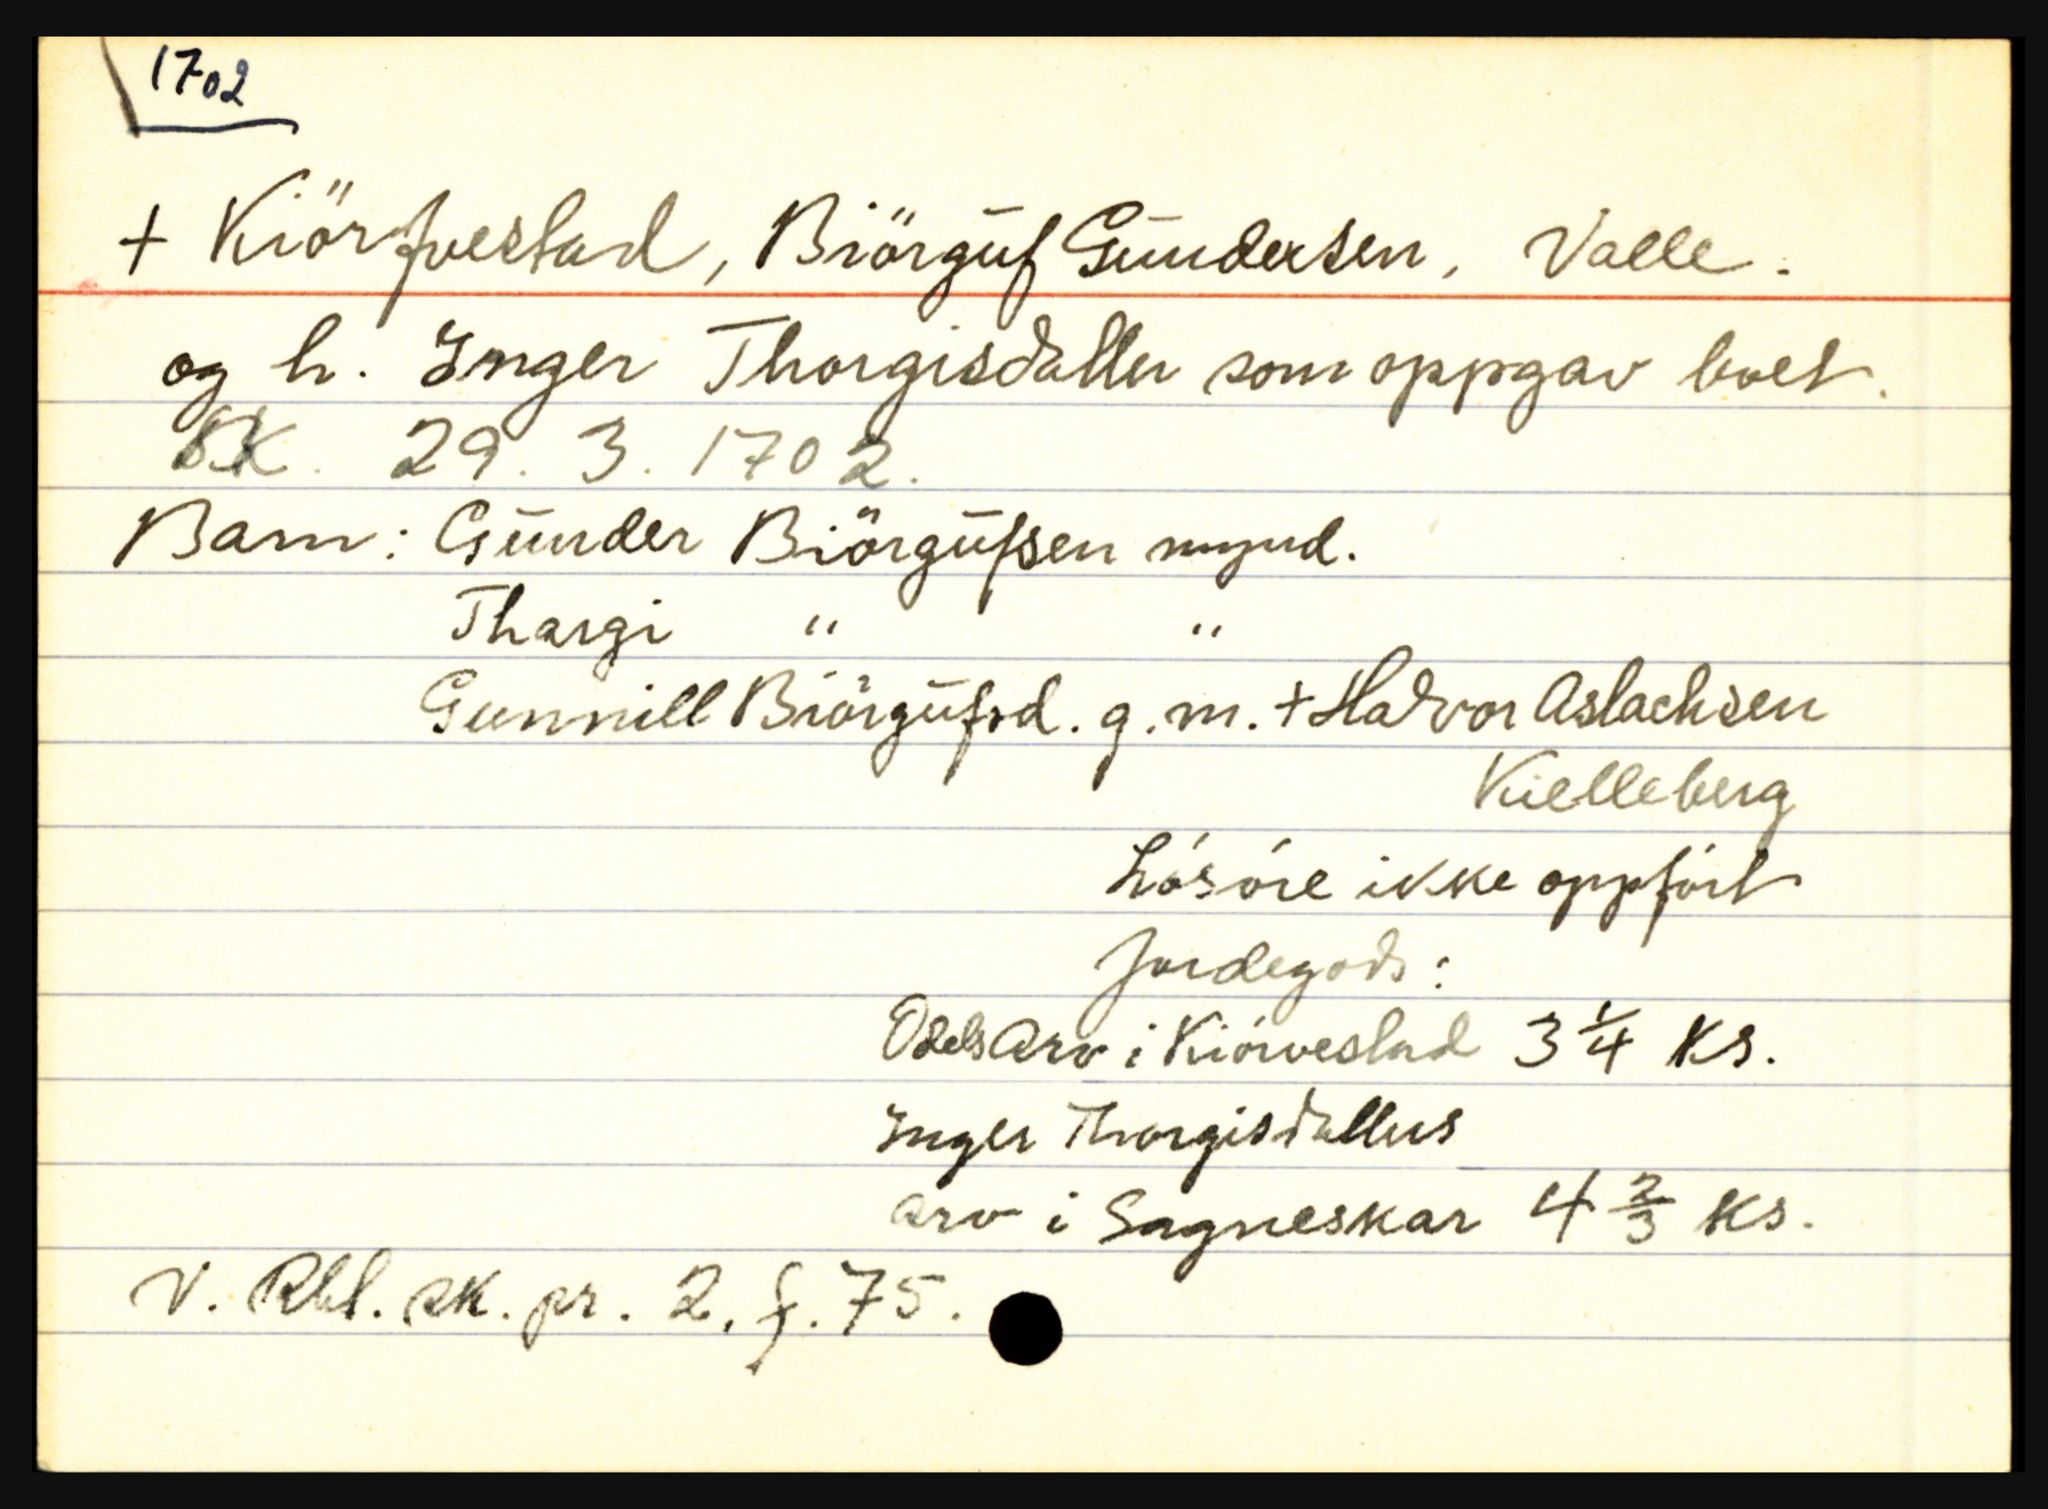 1702
+ Kiörfvestad, Biörguf Gundersen, Valle.
og h. Inger Thorgisdatter som oppgav boet.
SK. 29. 3. 1702.
Barn: Gunder Biörgufsen mynd.
Thargi " "
Gunnill Biörgufsd. g. m. + Halvor Aslachsen
Kielleberg
Lösöre ikke oppfört
Jordegods:
Odels Arv i Kiörvestad 3 1/4 Ks.
Inger Thorgisdatters
arv i Sagneskar 4 2/3 Ks.
V. Rbl. sk. pr. 2. f. 75.